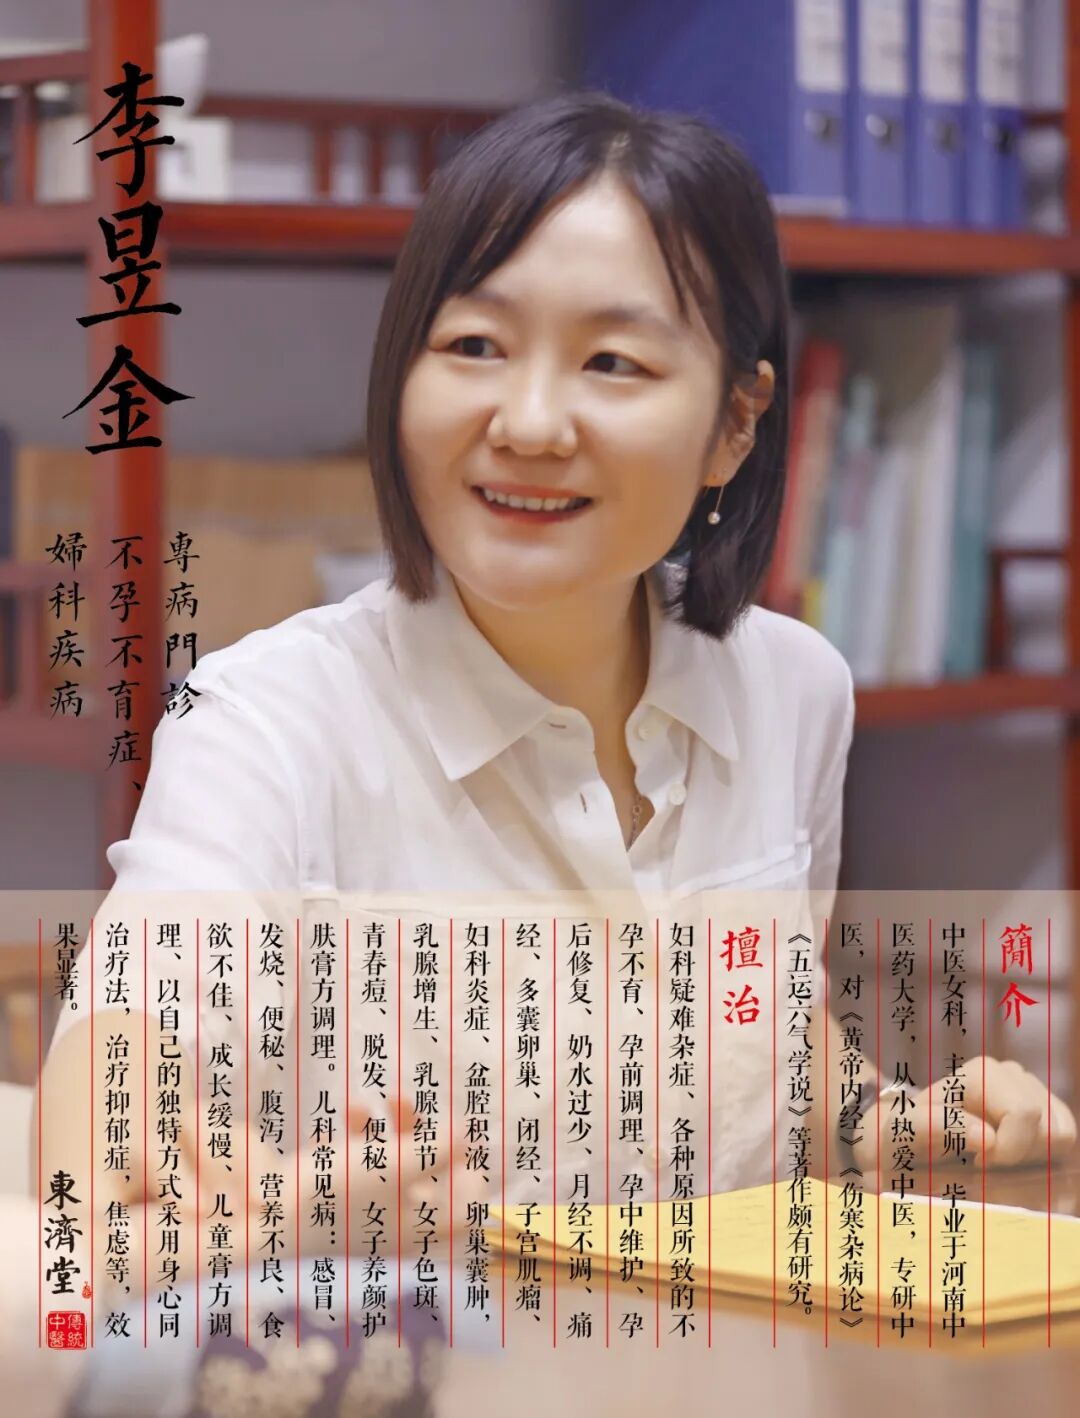 李昱金
専病門診
不孕不育症、
婦科疾病
簡介
中医女科，主治医师，毕业于河南中
医药大学，从小热爱中医，专研中
医，对《黄帝内经》《伤寒杂病论》
《五运六气学说》等著作颇有研究。
擅治
妇科疑难杂症、各种原因所致的不
孕不育、孕前调理、孕中维护、孕
后修复、奶水过少、月经不调、痛
经、多囊卵巢、闭经、子宫肌瘤、
妇科炎症、盆腔积液、卵巢囊肿，
乳腺增生、乳腺结节、女子色斑、
青春痘、脱发、便秘、女子养颜护
肤膏方调理。儿科常见病：感冒、
发烧、便秘、腹泻、营养不良、食
欲不佳、成长缓慢、儿童膏方调
理、以自己的独特方式采用身心同
治疗法，治疗抑郁症，焦虑等，效
果显著。
東濟堂
傳統
中醫